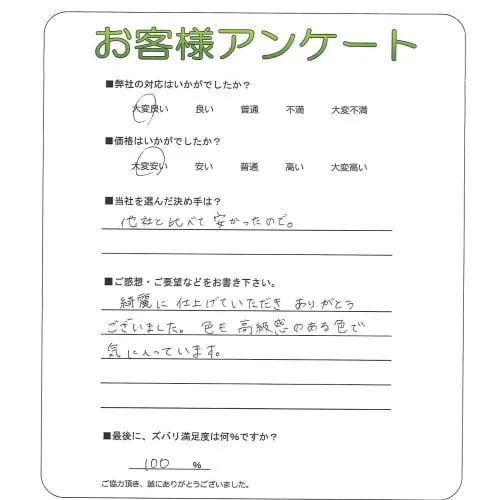 お客様アンケート
■弊社の対応はいかがでしたか？
大変良い 良い 普通 不満 大変不満
■価格はいかがでしたか？
大変安い 安い 普通 高い 大変高い
■当社を選んだ決め手は？
他社と比べて安かったので。
■ご感想・ご要望などをお書き下さい。
綺麗に仕上げていただき ありがとう
ございました。色も高級感のある色で
気に入っています。
■最後に、ズバリ満足度は何%ですか？
100 %
ご協力頂き、誠にありがとうございました。